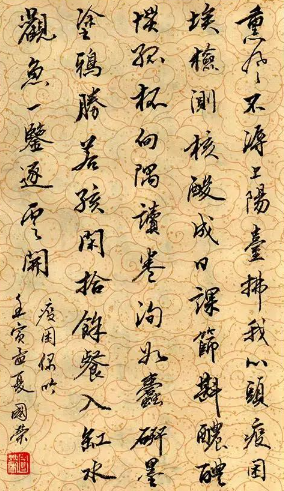 熏風不溽上陽臺拂我心頭疫困
埃檢測核酸成日課篩斟醲醴
孤杯向隅讀卷洵如蠹研墨
塗鴉勝若孩閑拾餘餐入缸水
觀魚一鑒逐雲開
疫困偶吟
壬寅孟夏國榮